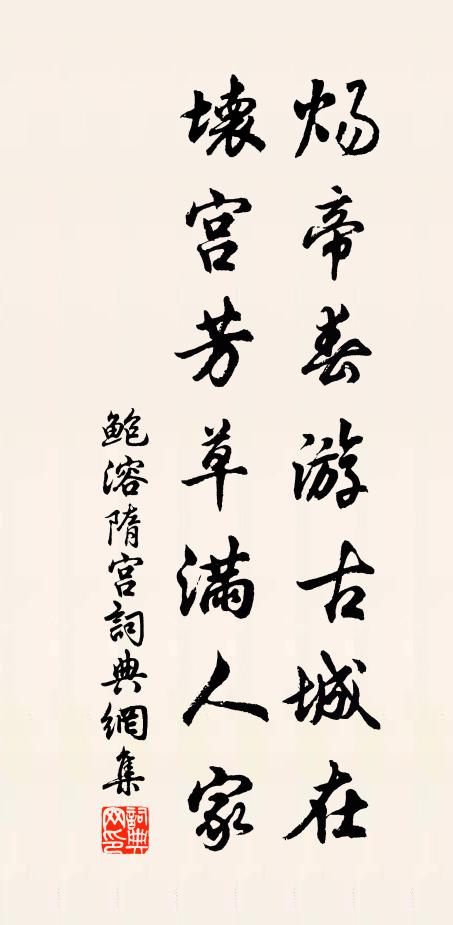 炀帝春游古城在
壞宫芳草滿人家
鲍溶隋宫詞典網集
詞典网印